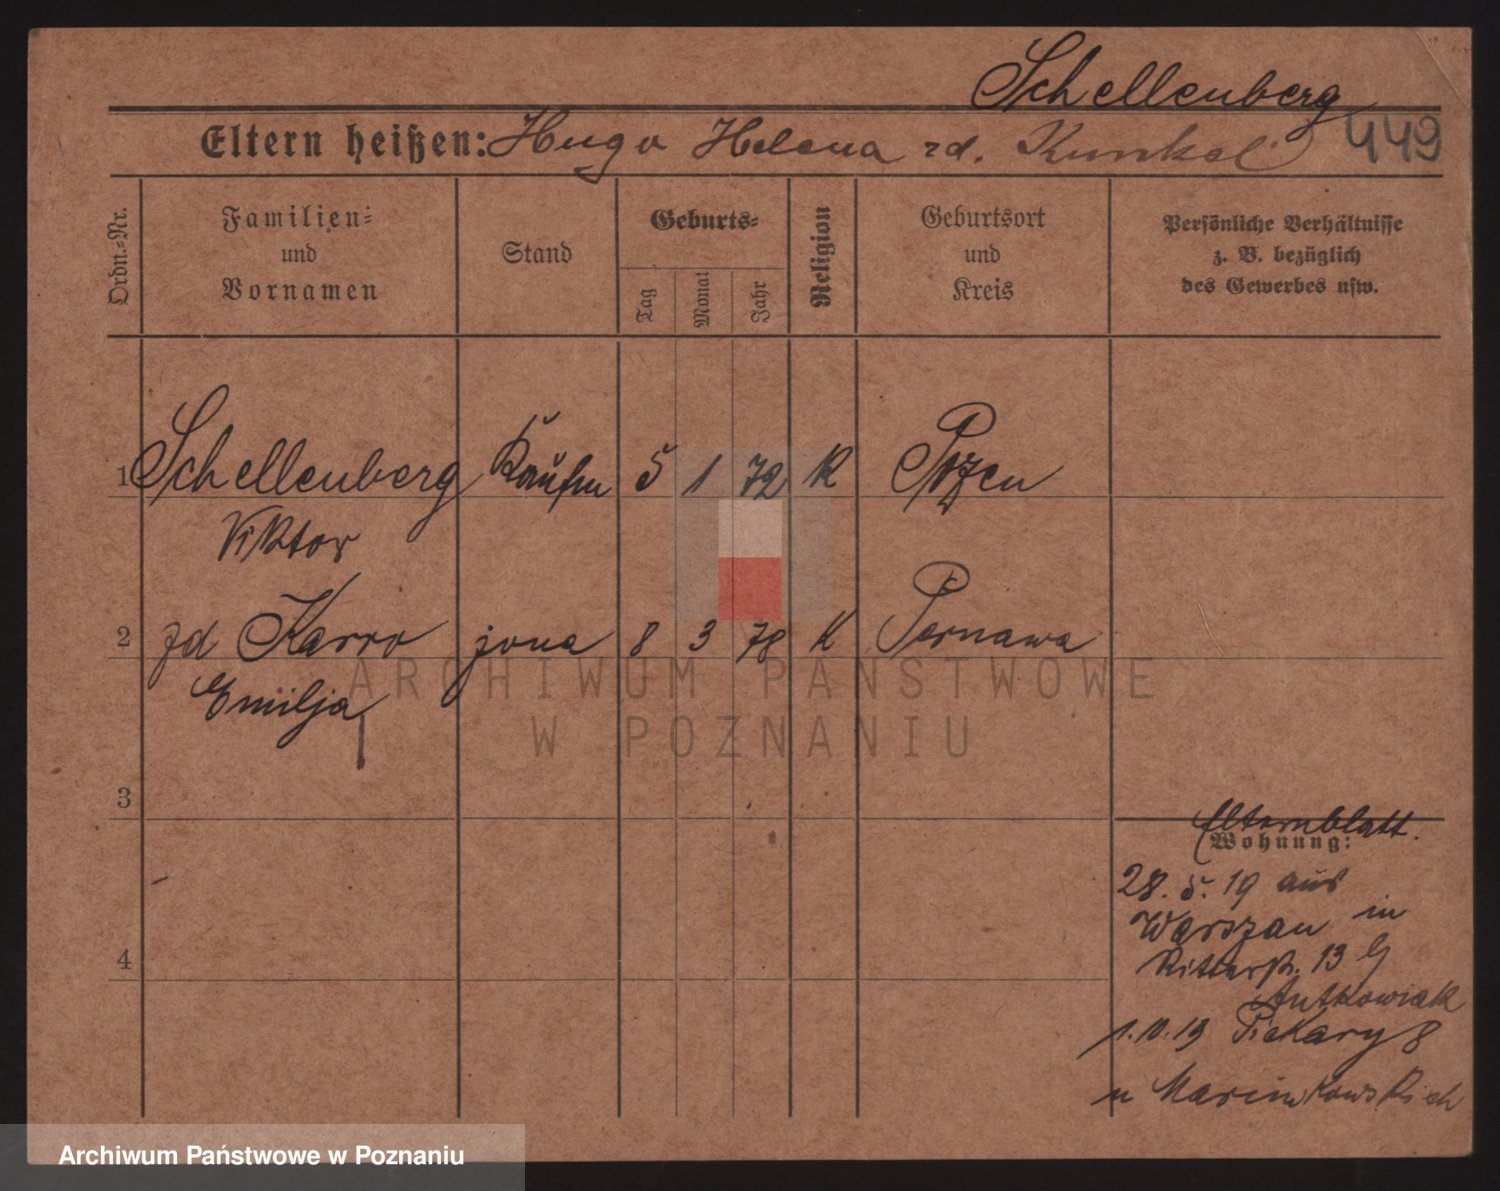 Schellenberg
Eltern heißen: Hugo Helena zd. Kunkel
449
Ordn.-Nr.
Familien-
und
Vornamen
Stand
Geburts-
Tag Monat Jahr
Religion
Geburtsort
und
Kreis
Persönliche Verhältnisse
z. B. bezüglich
des Gewerbes usw.
1 Schellenberg Kaufm 5 1 72 K Pozen
Viktor
2 zd Karro zona 8 3 78 K Pernawa
Emilja
3
4
Elternblatt.
Wohnung:
28. 5. 19 aus
Warszau in
Ritterstr. 13
Antkowiak
1.10.19 Piekary 8
u Marcinkowskich
ARCHIWUM PAŃSTWOWE
W POZNANIU
Archiwum Państwowe w Poznaniu